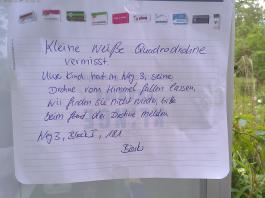 Kleine weiße Quadrodrohne
vermisst.
Uwe Kindl hat in Weg 3, seine
Drohne vom Himmel fallen lassen,
wir finden sie nicht wieder, bitte
beim Fund der Drohne melden.
Weg 3, Block I, 181